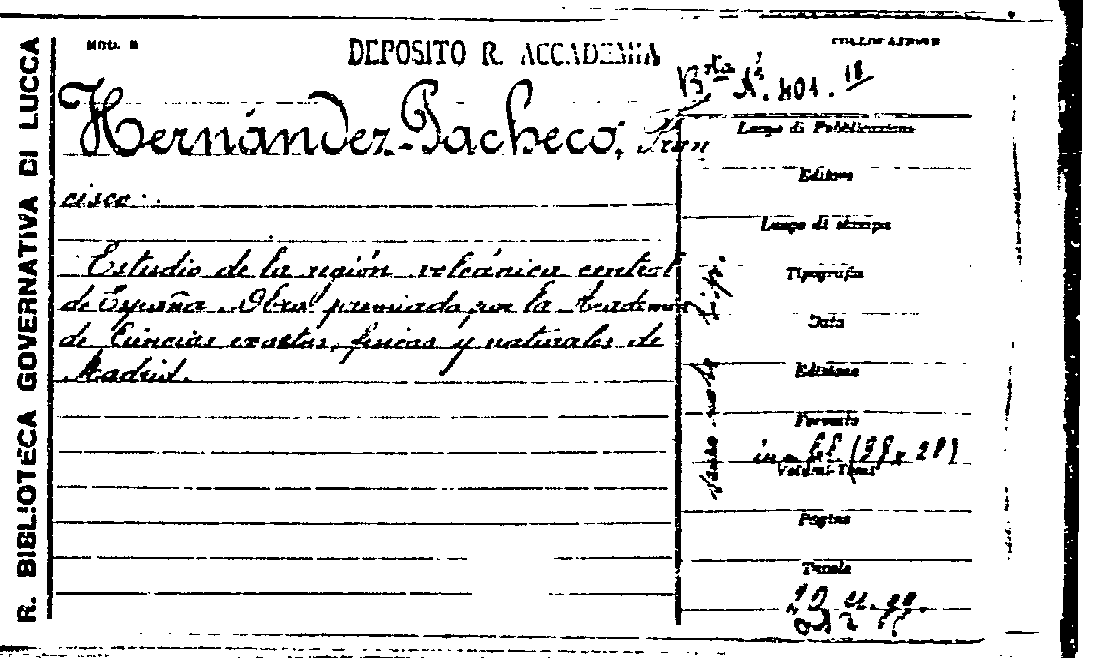 R. BIBLIOTECA GOVERNATIVA DI LUCCA
MOD. B
DEPOSITO R. ACCADEMIA
COLLOCAZIONE
B.ta N. 401. 18
Hernández-Pacheco, Fran
cisco.
Estudio de la región volcánica central
de España. Obra premiada por la Academia
de Ciencias exactas, físicas y naturales de
Madrid.
Luogo di Pubblicazione
Editore
Luogo di stampa
Tipografia
Data
Edizione
Formato
in fol.
Volumi-Tomi
Pagine
Tavole